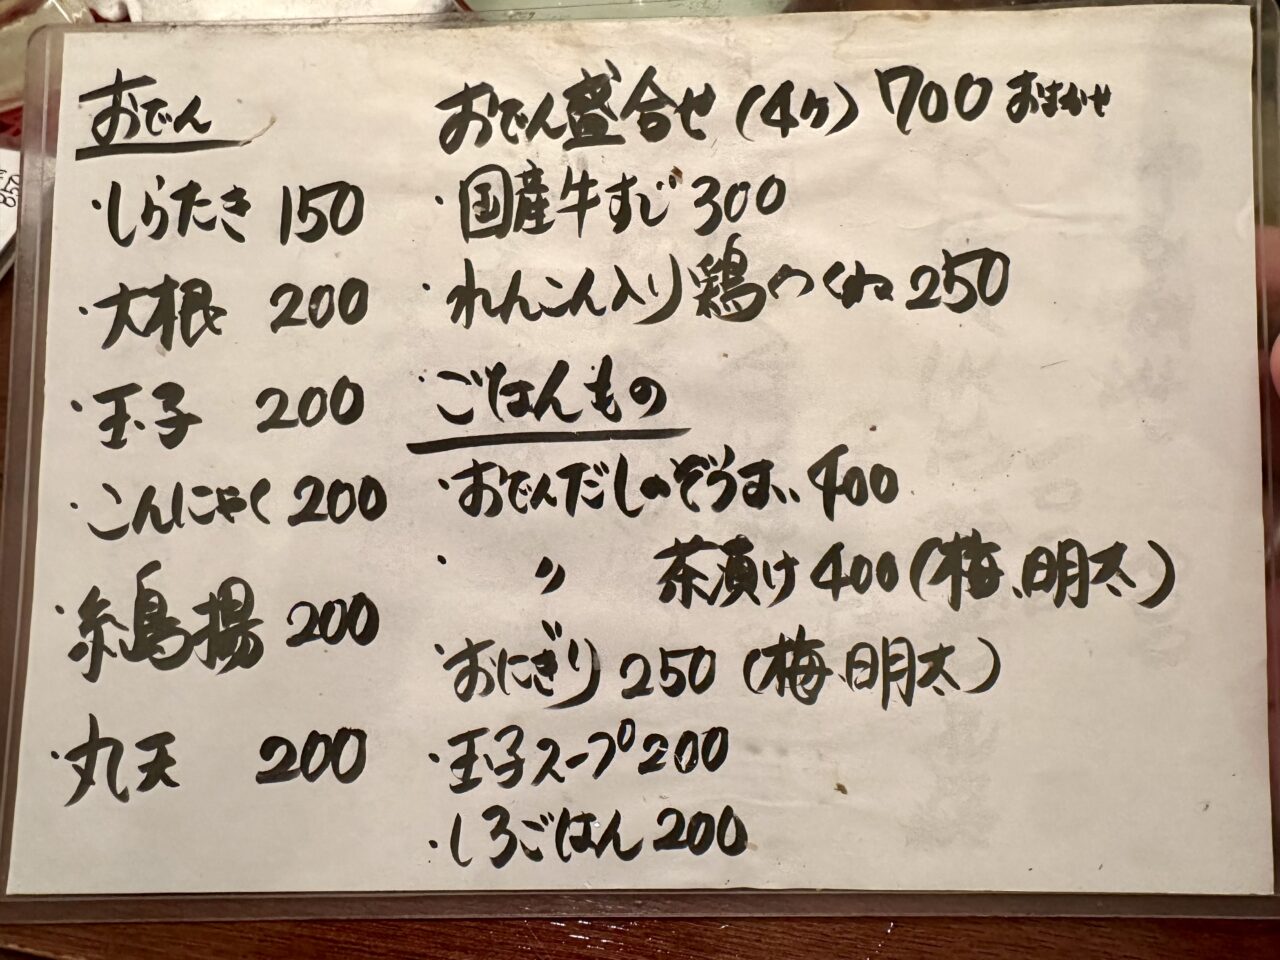 おでん
・しらたき 150
・大根 200
・玉子 200
・こんにゃく 200
・糸島揚 200
・丸天 200
おでん盛合せ(4ケ) 700 おまかせ
・国産牛すじ 300
・れんこん入り鶏つくね 250
・ごはんもの
・おでんだしのぞうすい 400
・〃 茶漬け 400(梅、明太)
・おにぎり 250(梅、明太)
・玉子スープ 200
・しろごはん 200
850